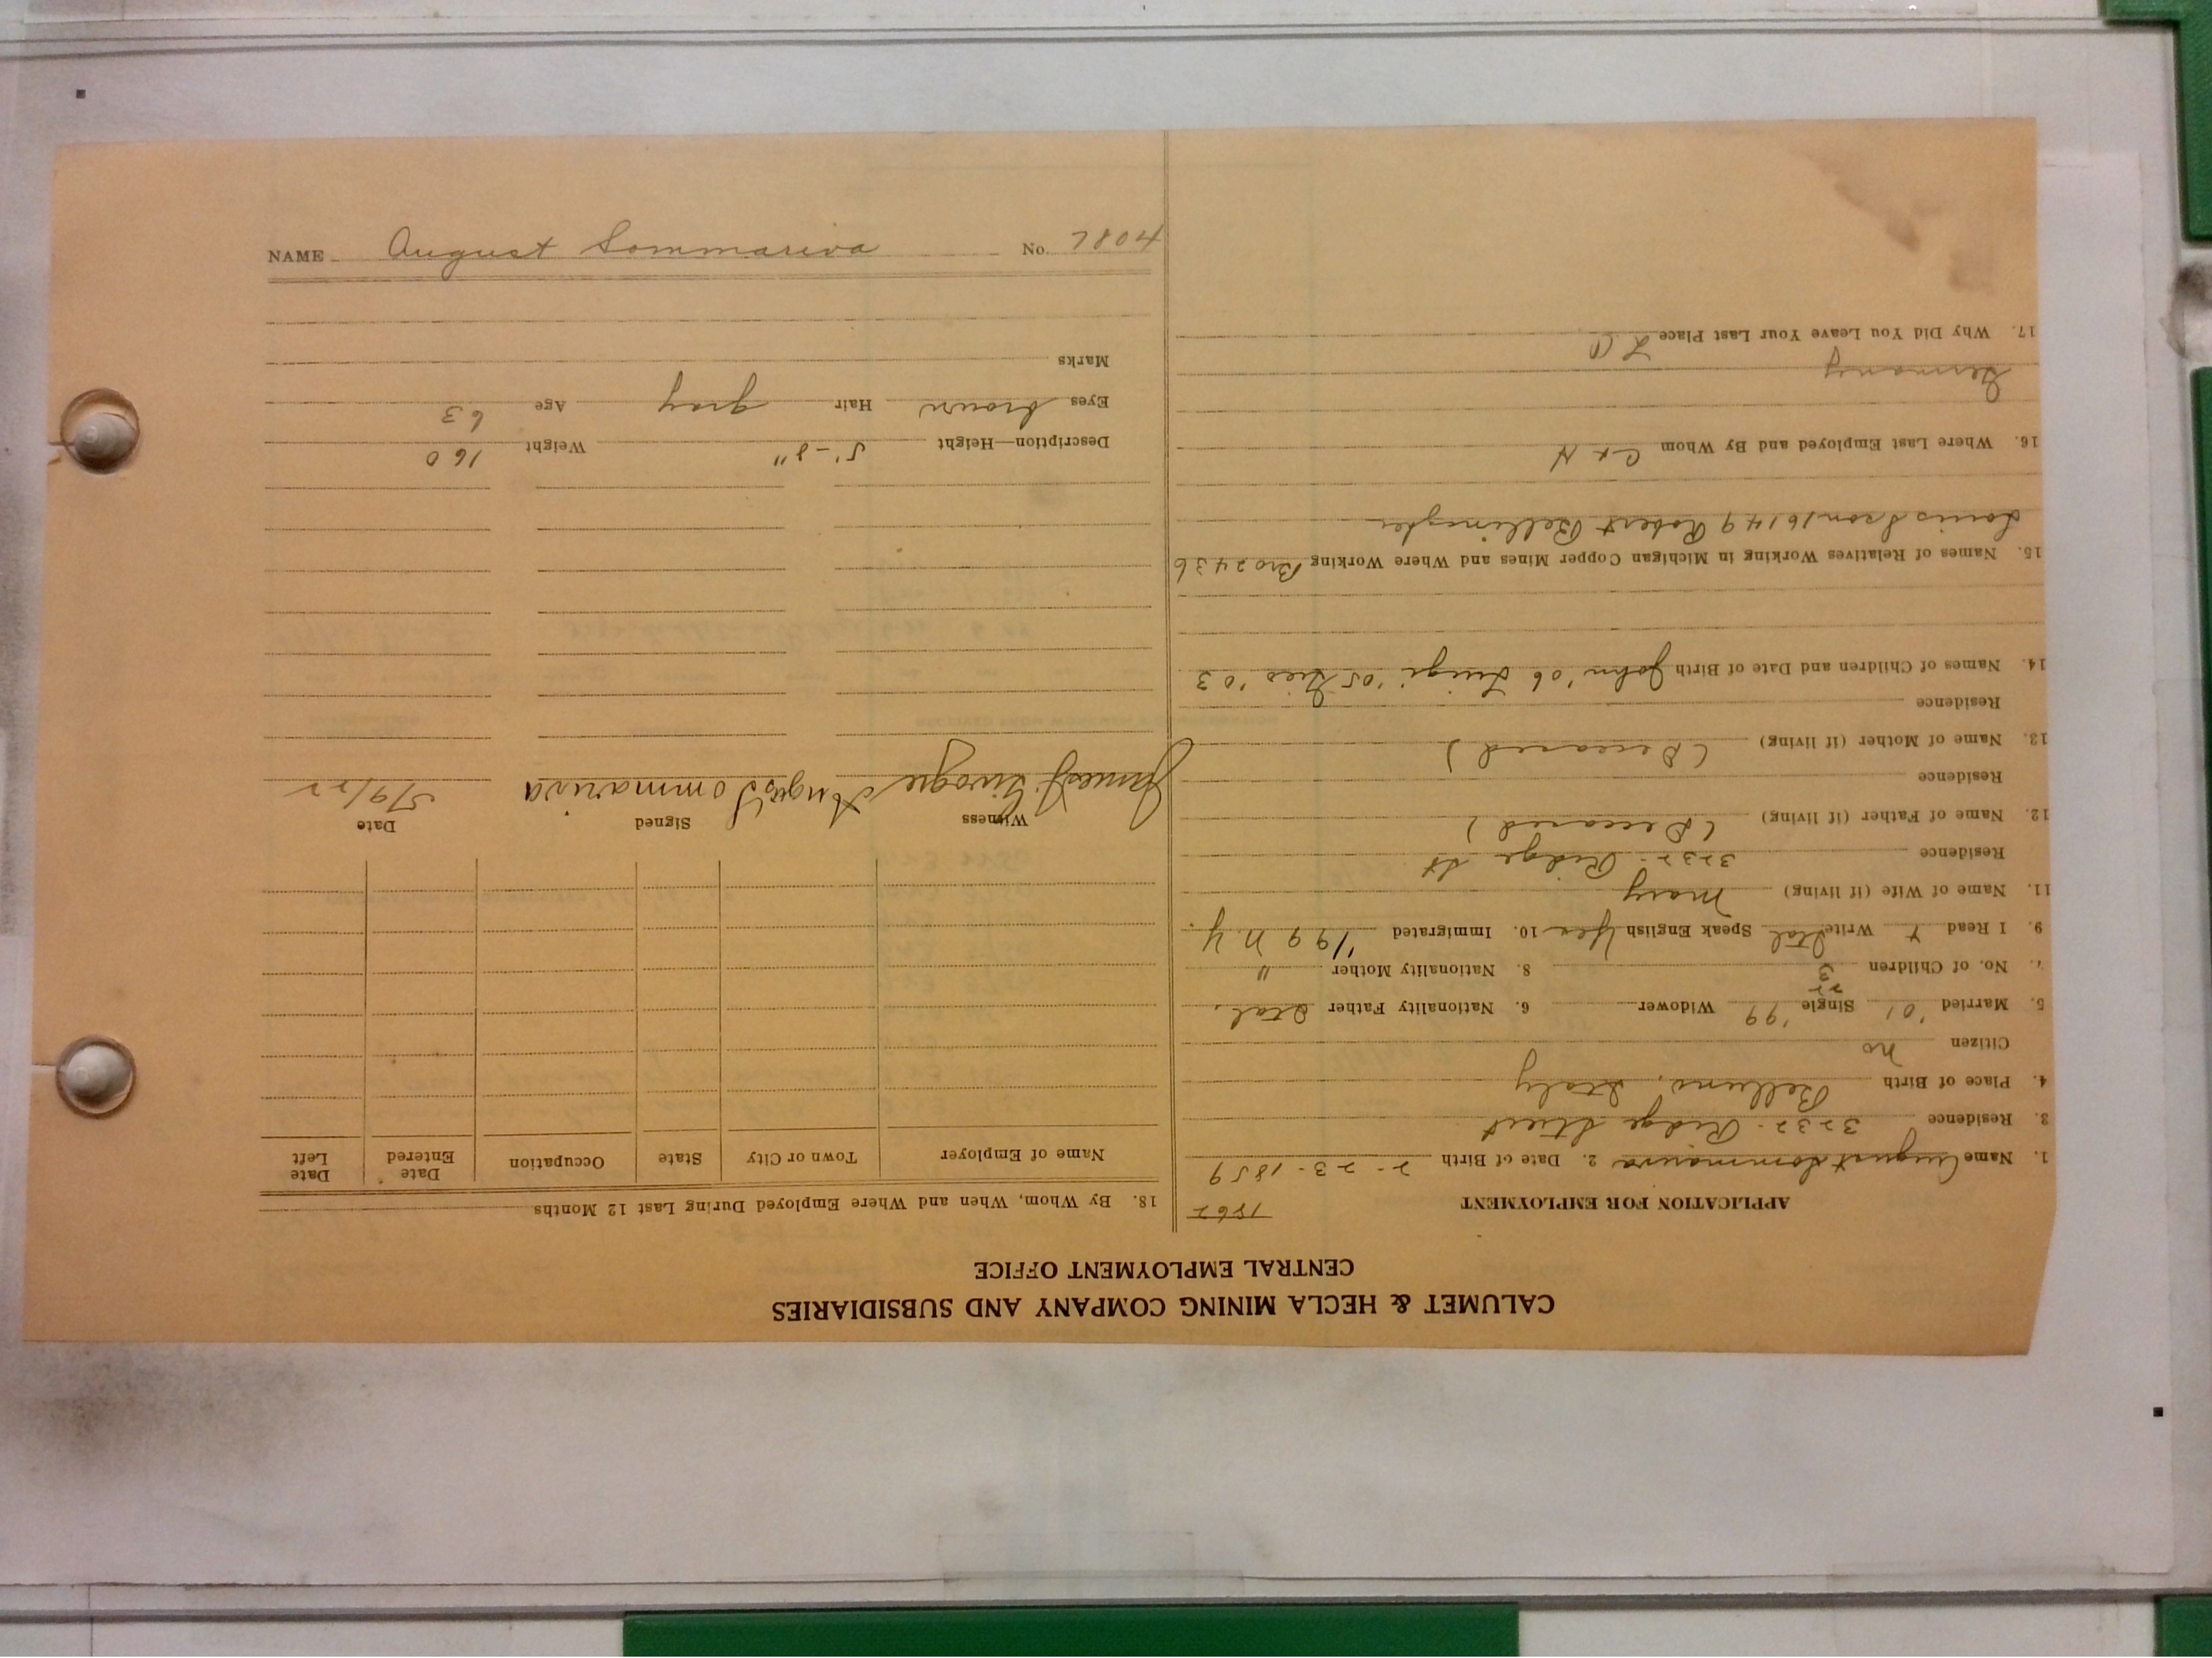 CALUMET & HECLA MINING COMPANY AND SUBSIDIARIES
CENTRAL EMPLOYMENT OFFICE
APPLICATION FOR EMPLOYMENT 1862
1. Name August Sommariva 2. Date of Birth 2-23-1859
3. Residence 3232- Ridge Street
4. Place of Birth Belluno, Italy
Citizen no
5. Married '01 Single '99 Widower 6. Nationality Father Ital.
7. No. of Children 3 8. Nationality Mother "
9. I Read + Write Ital Speak English Yes 10. Immigrated '99 N.Y.
11. Name of Wife (if living) Mary
Residence 3232- Ridge St
12. Name of Father (if living) (Deceased)
Residence
13. Name of Mother (if living) (Deceased)
Residence
14. Names of Children and Date of Birth John '06 Luigi '05 '03
15. Names of Relatives Working in Michigan Copper Mines and Where Working Bro 2436
Louis 16149 Robert
16. Where Last Employed and By Whom C & H
Germany
17. Why Did You Leave Your Last Place
18. By Whom, When and Where Employed During Last 12 Months
Name of Employer Town or City State Occupation Date Entered Date Left
Witness Signed Date
James August Sommariva 5/9/22
Description—Height 5'-8" Weight 160
Eyes brown Hair gray Age 63
Marks
NAME August Sommariva No. 7804